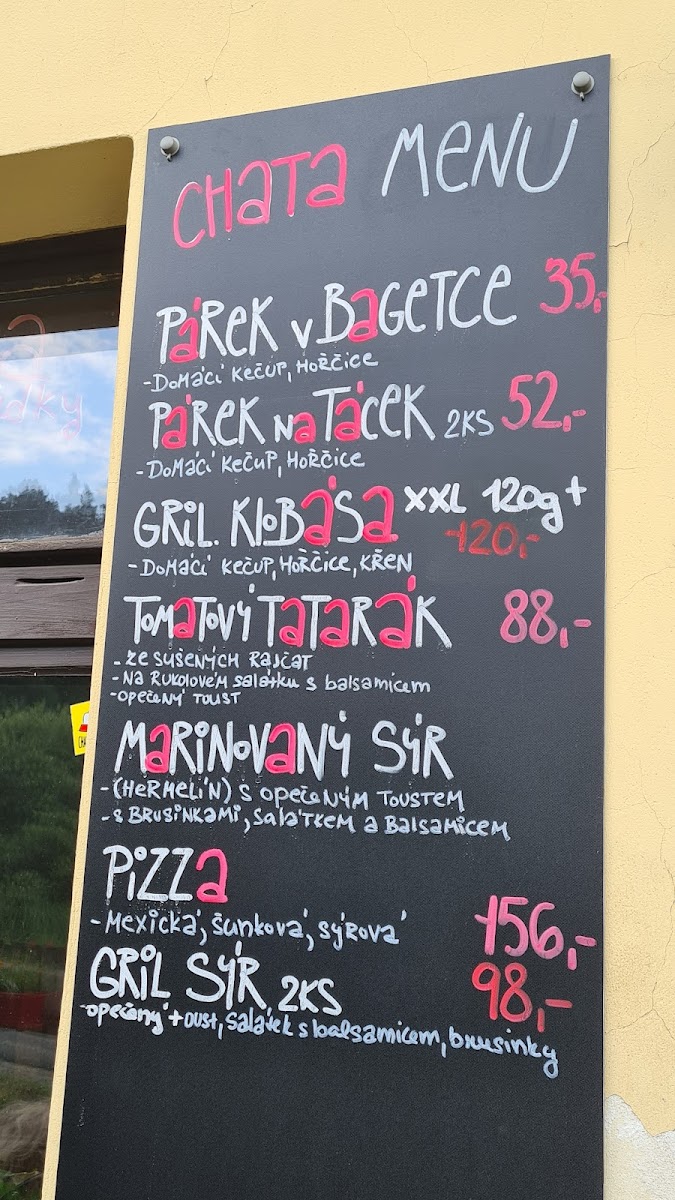 CHATA MENU
PÁREK V BAGETCE 35,-
-DOMÁCÍ KEČUP, HOŘČICE
PÁREK NA TÁCEK 2KS 52,-
-DOMÁCÍ KEČUP, HOŘČICE
GRIL. KLOBÁSA XXL 120g+
120,-
-DOMÁCÍ KEČUP, HOŘČICE, KŘEN
TOMATOVÝ TATARÁK 88,-
-ZE SUŠENÝCH RAJČAT
-NA RUKOLOVÉM SALÁTKU S BALSAMICEM
-OPEČENÝ TOUST
MARINOVANÝ SÝR
-(HERMELÍN) S OPEČENÝM TOUSTEM
-S BRUSINKAMI, SALÁTKEM A BALSAMICEM
PIZZA
-MEXICKÁ, ŠUNKOVÁ, SÝROVÁ 156,-
GRIL SÝR 2KS 98,-
-opečený toust, salátek s balsamicem, brusinky